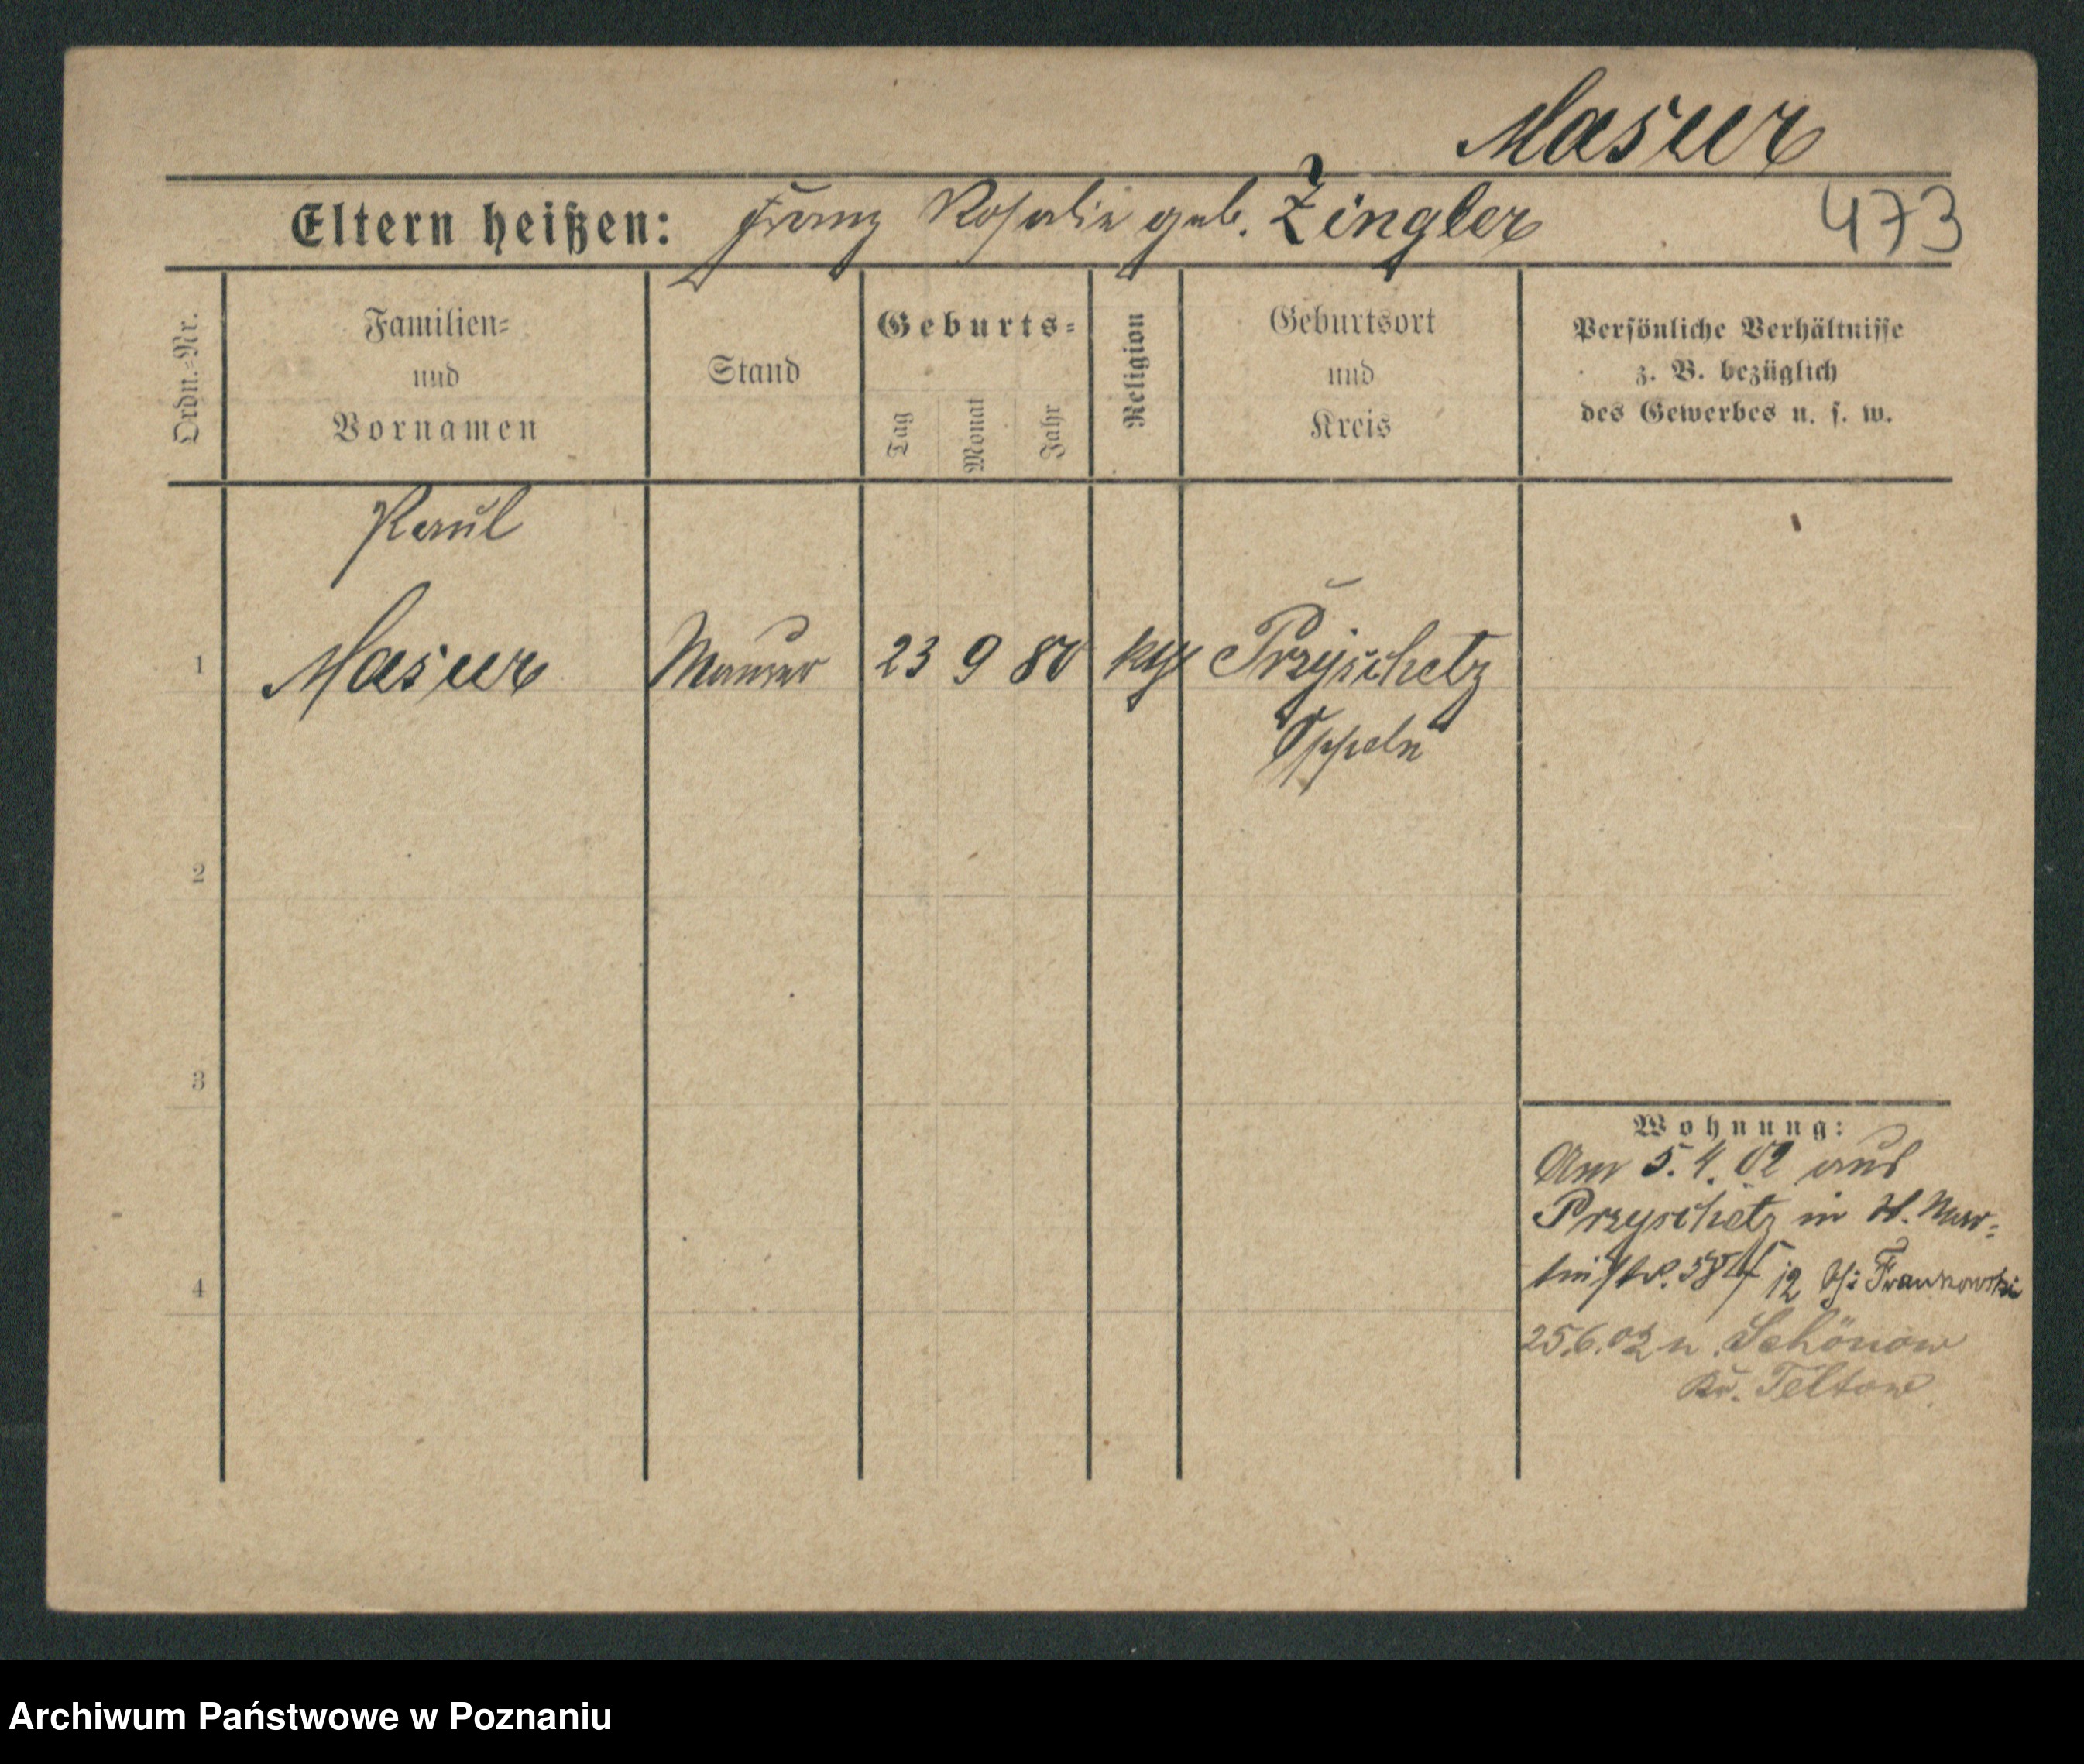 Masur
Eltern heißen: Franz Rosalie geb. Zingler
473
Ordn.=Nr.
Familien=
und
Vornamen
Stand
Geburts=
Tag
Monat
Jahr
Religion
Geburtsort
und
Kreis
Persönliche Verhältnisse
z. B. bezüglich
des Gewerbes u. s. w.
Paul
1 Masur Maurer 23 9 80 kath Przyschetz
Oppeln
2
3
4
Wohnung:
Am 5.4.02 aus
Przyschetz in St. Mar=
tinstr. 58 12 b/: Frankowski
25.6.02 n. Schönow
Kr. Teltow
Archiwum Państwowe w Poznaniu